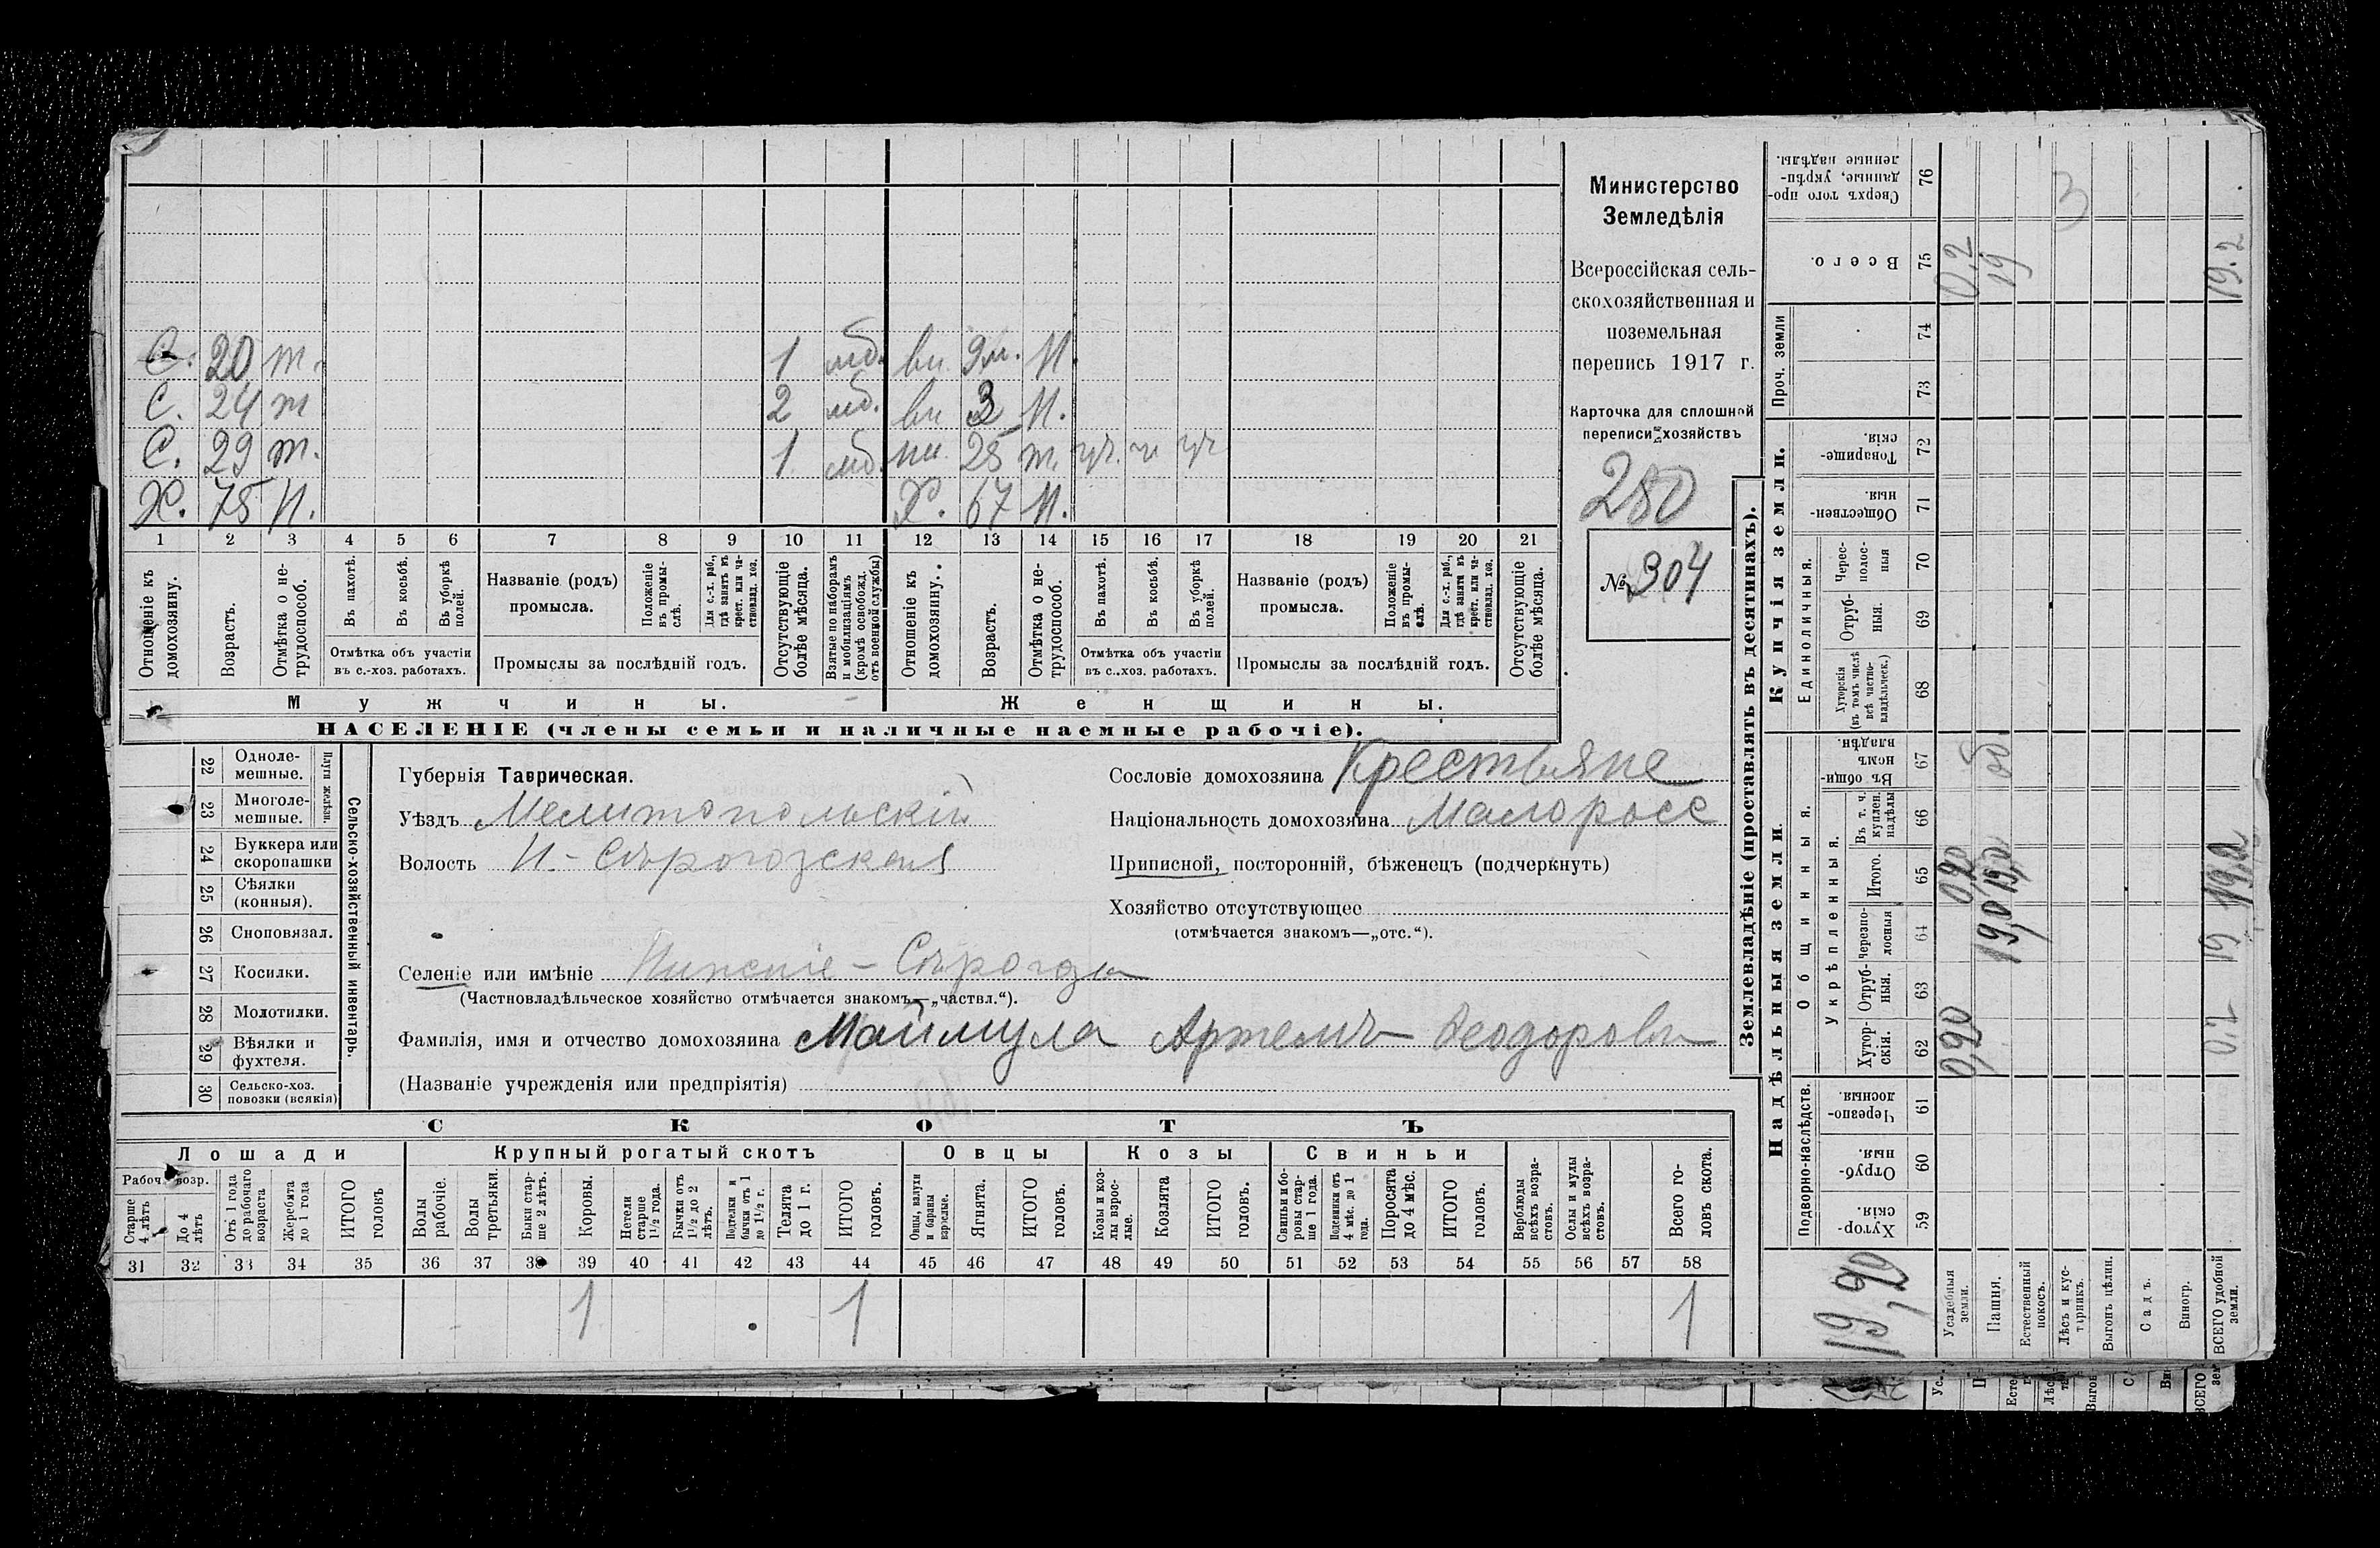 С. 20 т. 1 мб. вн. 9м. Н.
С. 24 т 2 мб. вн 3 Н.
С. 29 т. 1 мб. нн. 25 т. уч. уч уч
Х. 75 Н. Х. 67 Н.
1 2 3 4 5 6 7 8 9 10 11 12 13 14 15 16 17 18 19 20 21
Отношеніе къ домохозяину.
Возрастъ.
Отмѣтка о не-трудоспособ.
Въ пахотѣ.
Въ косьбѣ.
Въ уборкѣ полей.
Отмѣтка объ участіи
въ с.-хоз. работахъ.
Названіе (родъ)
промысла.
Положеніе въ промы-слѣ.
Для с.-х. раб., гдѣ занятъ въ крест. или ча-стновлад. хоз.
Промыслы за послѣдній годъ.
Отсутствующіе болѣе мѣсяца.
Взятые по наборамъ и мобилизаціямъ (кромѣ освобожд. отъ военной службы)
Отношеніе къ домохозяину.
Возрастъ.
Отмѣтка о не-трудоспособ.
Въ пахотѣ.
Въ косьбѣ.
Въ уборкѣ полей.
Отмѣтка объ участіи
въ с.-хоз. работахъ.
Названіе (родъ)
промысла.
Положеніе въ промы-слѣ.
Для с.-х. раб., гдѣ занята въ крест. или ча-стновлад. хоз.
Промыслы за послѣдній годъ.
Отсутствующіе болѣе мѣсяца.
Мужчины. Женщины.
НАСЕЛЕНІЕ (члены семьи и наличные наемные рабочіе).
Министерство
Земледѣлія
Всероссійская сель-
скохозяйственная и
поземельная
перепись 1917 г.
Карточка для сплошной
переписи хозяйствъ
280
№ 304
22 Одноле-мешные.
23 Многоле-мешные.
Плуги желѣзн.
24 Буккера или скоропашки
25 Сѣялки (конныя).
26 Сноповязал.
27 Косилки.
28 Молотилки.
29 Вѣялки и фухтеля.
30 Сельско-хоз. повозки (всякія)
Сельско-хозяйственный инвентарь.
Губернія Таврическая.
Уѣздъ Мелитопольскій
Волость Н.-Сѣрогозская
Сословіе домохозяина Крестьяне
Національность домохозяина Малоросс
Приписной, посторонній, бѣженецъ (подчеркнуть)
Хозяйство отсутствующее
(отмѣчается знакомъ—„отс.“).
Селеніе или имѣніе Нижніе-Сѣрогозы
(Частновладѣльческое хозяйство отмѣчается знакомъ—„частвл.“).
Фамилія, имя и отчество домохозяина Маймула Артемъ Феодоровъ
(Названіе учрежденія или предпріятія)
СКОТЪ
Лошади Крупный рогатый скотъ Овцы Козы Свиньи
Рабоч. возр.
Старше 4 лѣтъ
До 4 лѣтъ
Отъ 1 года до рабочаго возраста
Жеребята до 1 года
ИТОГО головъ
Волы рабочіе.
Волы третьяки.
Быки стар-ше 2 лѣтъ.
Коровы.
Нетели старше 1½ года.
Бычки отъ 1½ до 2 лѣтъ.
Подтелки и бычки отъ 1 до 1½ г.
Телята до 1 г.
ИТОГО головъ.
Овцы, валухи и бараны взрослые.
Ягнята.
ИТОГО головъ.
Козы и коз-лы взрос-лые.
Козлята
ИТОГО головъ.
Свиньи и бо-ровы стар-ше 1 года.
Подсвинки отъ 4 мѣс. до 1 года.
Поросята до 4 мѣс.
ИТОГО головъ.
Верблюды всѣхъ возра-стовъ.
Ослы и мулы всѣхъ возра-стовъ.
Всего го-ловъ скота.
31 32 33 34 35 36 37 38 39 40 41 42 43 44 45 46 47 48 49 50 51 52 53 54 55 56 57 58
1 1 1
Землевладѣніе (проставлять въ десятинахъ).
Надѣльныя земли.
Купчія земли.
Подворно-наслѣдств.
Общинныя.
Укрѣпленныя.
Единоличныя.
Проч. земли
Хутор-скія. 59
Отруб-ныя. 60
Черезпо-лосныя. 61
Хутор-скія. 62
Отруб-ныя. 63
Черезпо-лосныя 64
Итого. 65
Въ т. ч. куплен. надѣлы 66
Въ общи-нномъ владѣн. 67
Хуторскія (въ томъ числѣ всѣ частно-владѣльческ.) 68
Отруб-ныя. 69
Черес-полос-ныя 70
Обществен-ныя. 71
Товарище-скія. 72
73
74
Всего. 75
Сверхъ того про-данные, укрѣп-ленные надѣлы. 76
19,20
Усадебныя земли. 0,20 0,20 0,2
Пашня. 19,0 19,0 об 19
Естественный покосъ.
Лѣсъ и кус-тарникъ. 3
Выгонъ цѣлин.
Садъ.
Виногр.
ВСЕГО удобной земли. 0.2 19 19,2 19.2